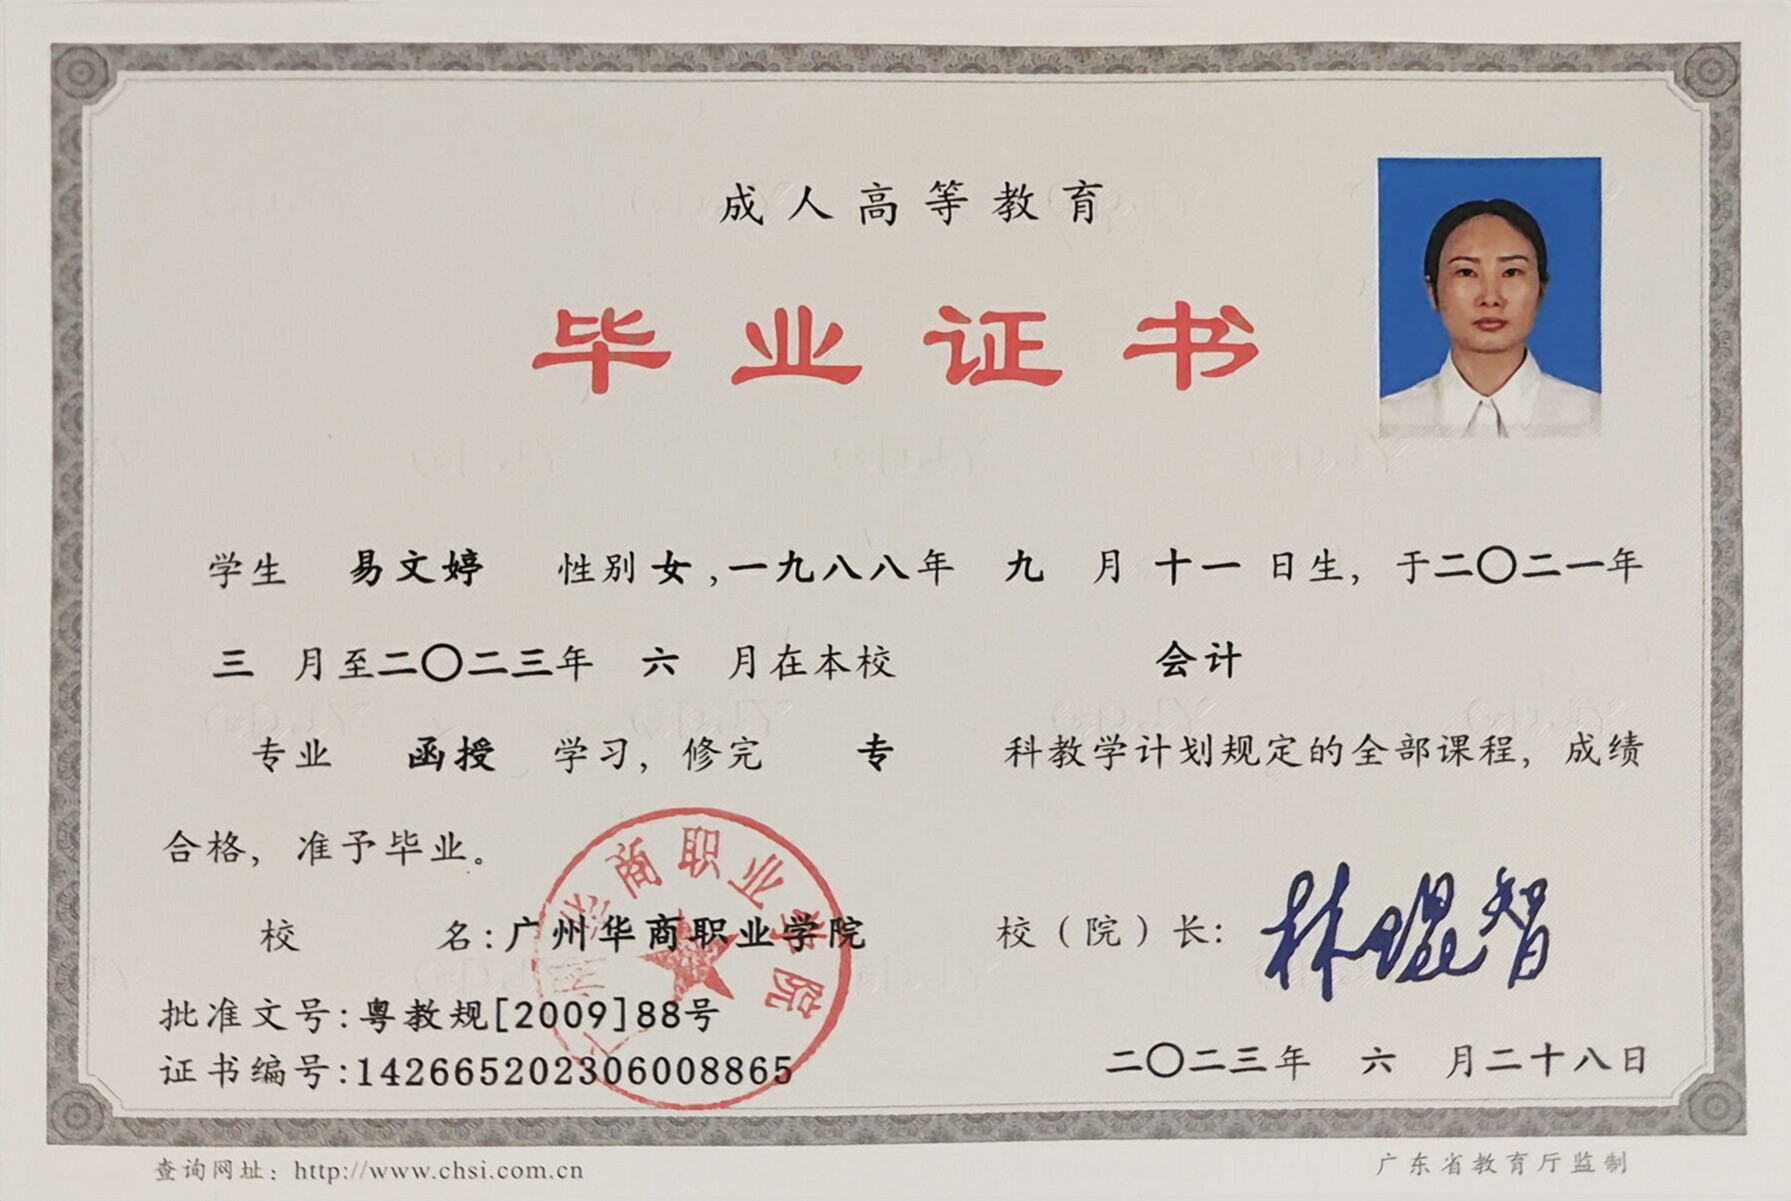 成人高等教育
毕业证书
学生 易文婷 性别 女，一九八八年 九 月 十一 日生，于二〇二一年
三 月至二〇二三年 六 月在本校 会计
专业 函授 学习，修完 专 科教学计划规定的全部课程，成绩
合格，准予毕业。
校 名：广州华商职业学院 校（院）长：林琨智
广州华商职业学院
批准文号：粤教规[2009]88号
证书编号：142665202306008865
二〇二三年 六 月二十八日
查询网址：http://www.chsi.com.cn
广东省教育厅监制